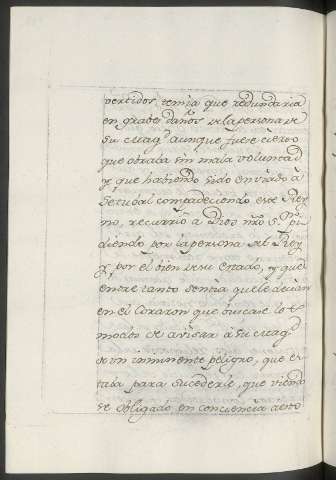 vertidos, temia que redundaria
en grabes daños de la persona de
Su Mag.d aunque fuese cierto
que obraba sin mala voluntad
y que habiendo sido enviado à
Setubal compadeciendo este Rey
no, recurrio a Dios nro S.or pi
diendo por la persona del Rey
y por el bien de su estado, y que
entre tanto sentia que le decian
en el Corazon que buscase los
modos de avisar à Su Mag.d
de un imminente peligro, que es
taba para sucederle, que viendo
se obligado en conciencia à esto